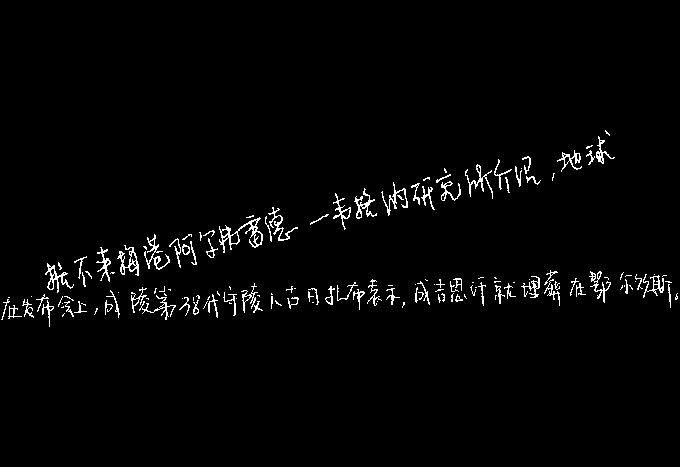 据不来梅港阿尔弗雷德一韦格纳研究所介绍,地球
在发布会上,成陵第38代守陵人古日扎布表示,成吉思汗就埋葬在鄂尔多斯。